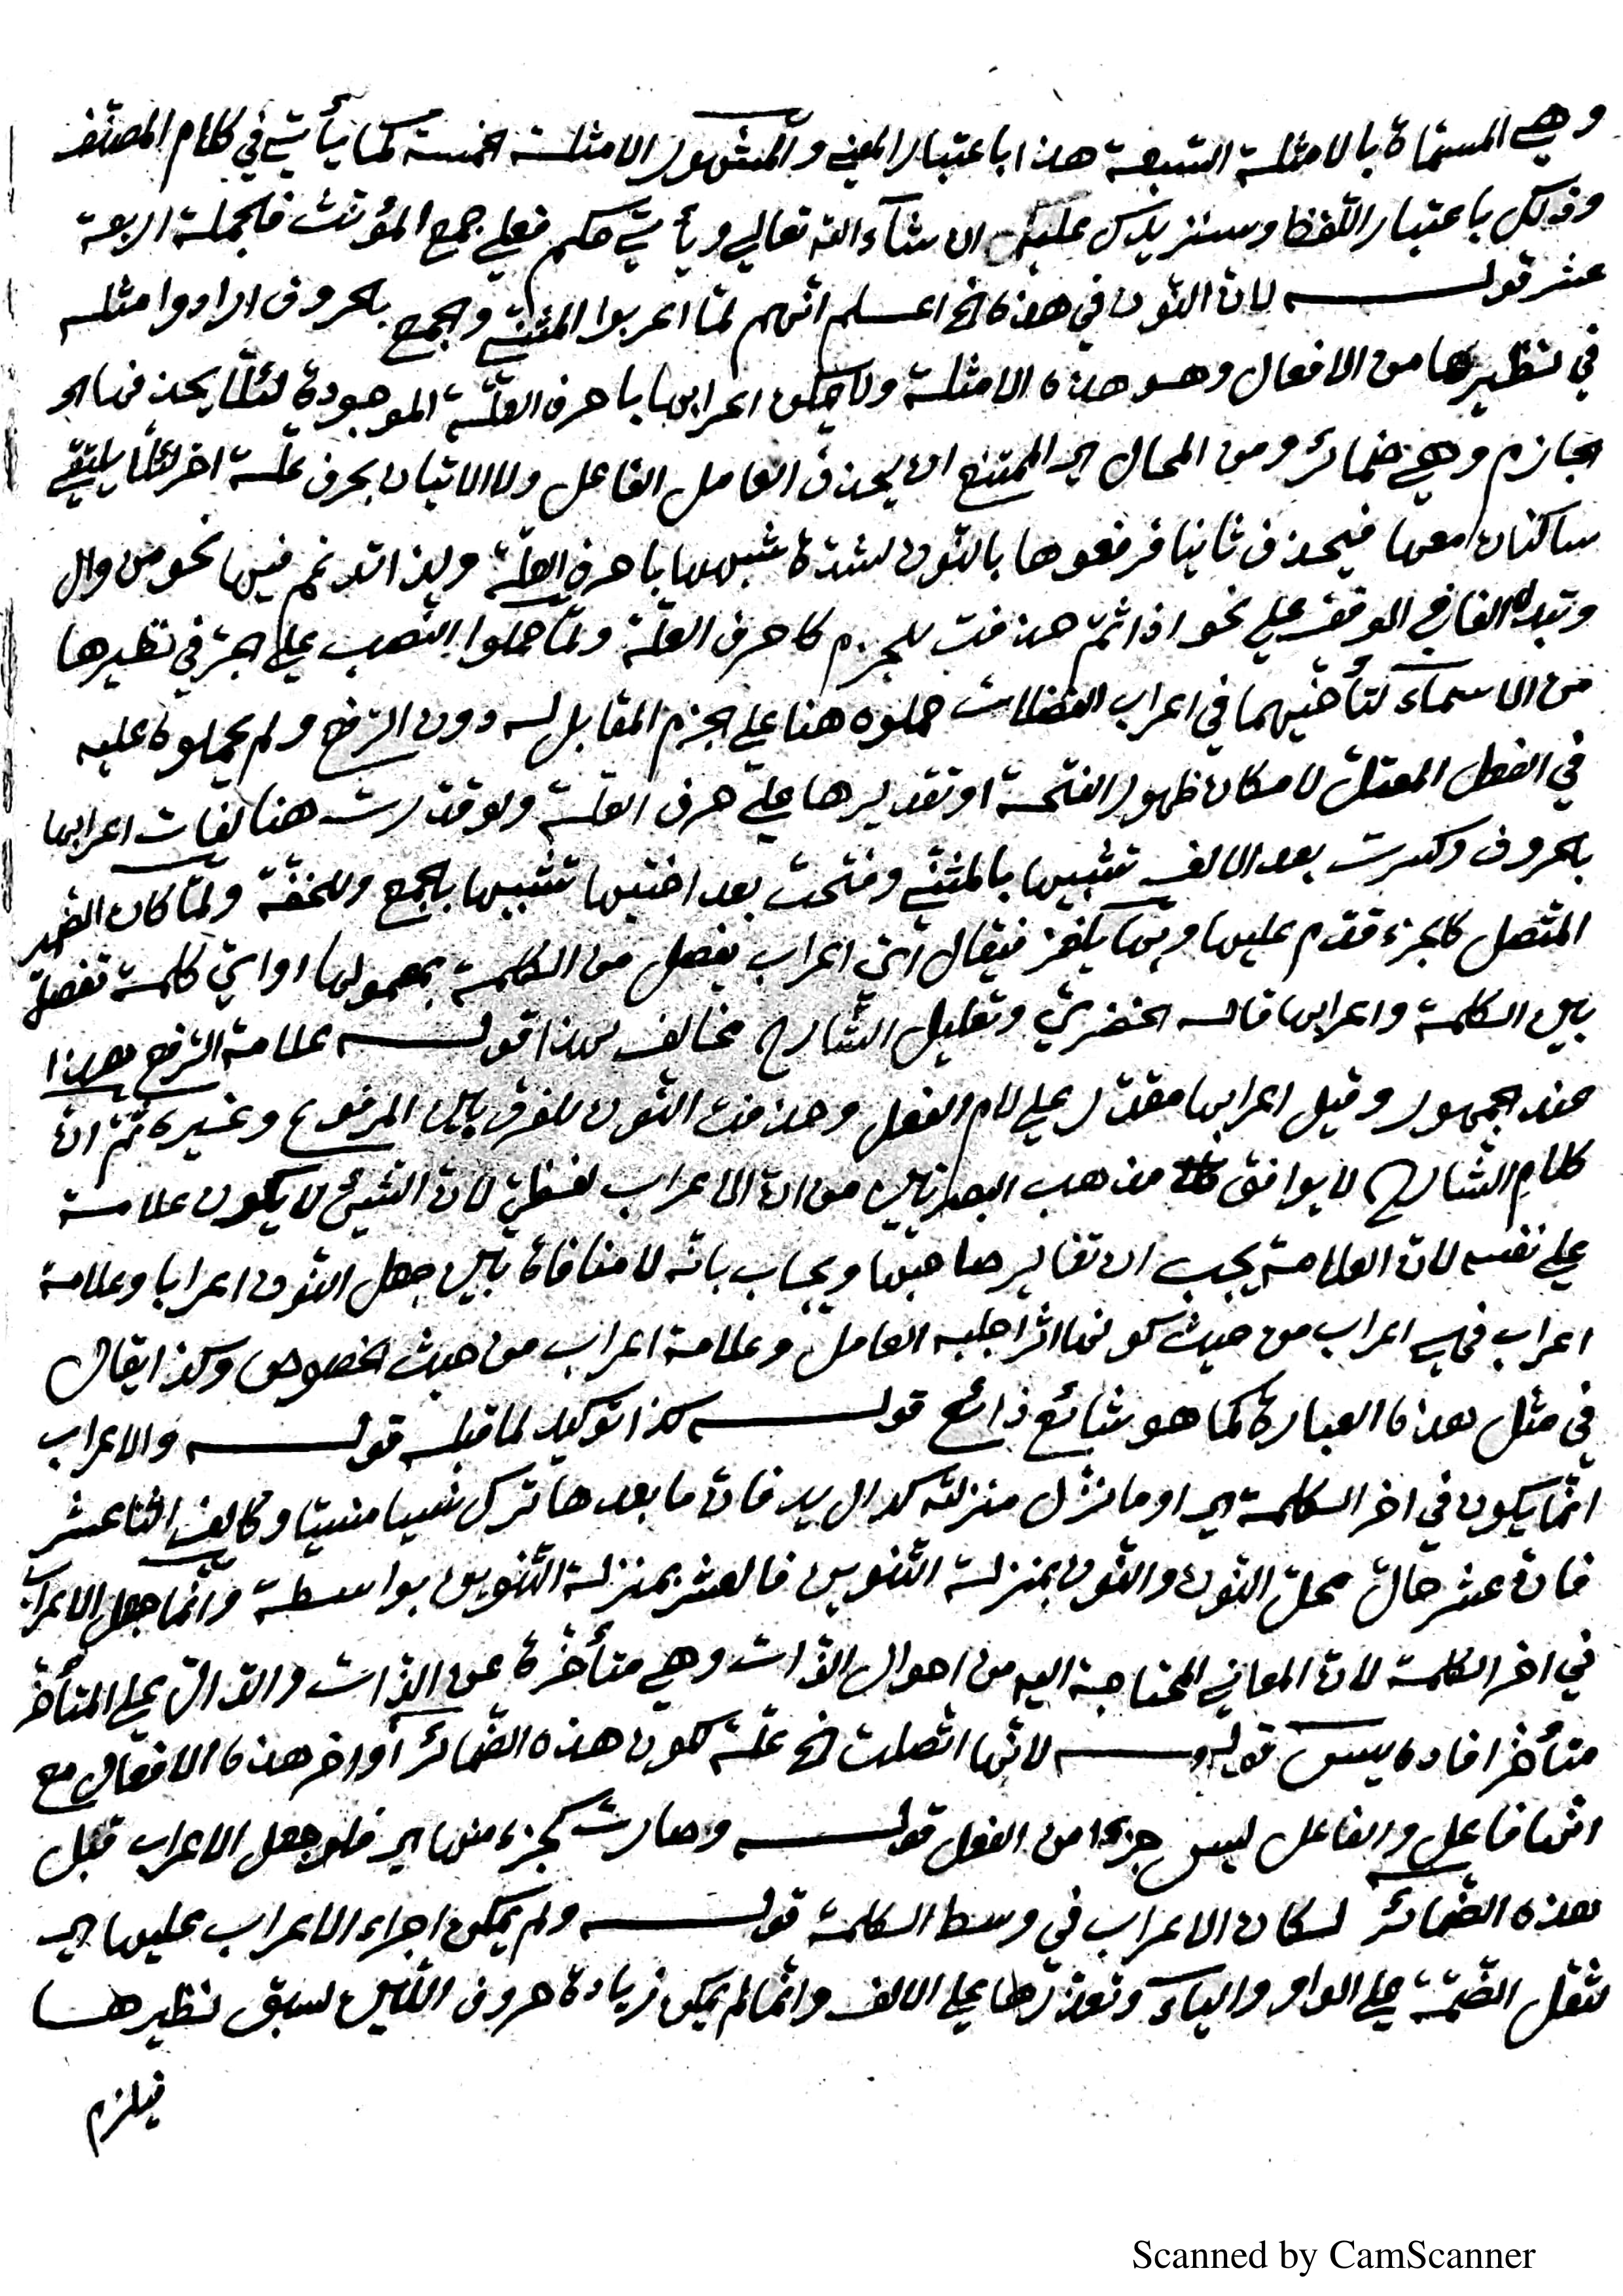 وهي المسمّاة بالامثلة السّبعة هذا باعتبار المعنى والمشهور الامثلة الخمسة كما يأتي في كلام المصنّف
وذلك باعتبار اللّفظ وسنزيدك عليك ان شآء الله تعالى ويأتي حكم فعلي جمع المؤنّث فالجملة اربعة
عشر قولـــه لانّ النّون في هذه الخ اعلم انّهم لمّا اعربوا المثنّى والجمع بالحروف ارادوا مثله
في نظيرها من الافعال وهو هذه الامثلة ولا يمكن اعرابها باحرف العلّة الموجودة لئلّا يحذفها
الجازم وهي ضمائر ومن المحال اي الممتنع ان يحذف العامل الفاعل ولا الاتيان بحرف علّة اخر لئلّا يلتقي
ساكنان معها فيحذف ثانيا فرفعوها بالنّون لشدّة شبهها باحرف العلّة ولذا تدغم فيها نحو من وال
وتبدل الفا في الوقف على نحو اذا ثمّ حذفت للجزم كاحرف العلّة ولمّا حملوا النّصب على الجرّ في نظيرها
من الاسماء لتأخّيهما في اعراب الفضلات حملوه هنا على الجزم المقابل له دون الرّفع ولم يحملوه عليه
في الفعل المعتلّ لامكان ظهور الفتحة او تقديرها على حرف العلّة ولو قدّرت هنا لفات اعرابها
بالحروف وكسرت بعد الالف تشبيها بالمثنّى وفتحت بعد اختيها تشبيها بالجمع وللخفّة ولمّا كان الضّمير
المتّصل كالجزء قدّم عليها وبها يلغز فيقال ايّ اعراب يفصل من الكلمة بمعمولها او ايّ كلمة تفصل
بين الكلمة واعرابها قاله الخضريّ وتعليل الشّارح مخالف لهذا قولـــه علامة الرّفع هذا
عند الجمهور وقيل اعرابها مقدّر على لام الفعل وحذفت النّون للفرق بين المرفوع وغيره ثمّ انّ
كلام الشّارح لا يوافق مذهب البصريّين من انّ الاعراب لفظيّ لانّ الشّيئ لا يكون علامة
على نفسه لانّ العلامة يجب ان تغاير صاحبها ويجاب بانّه لا منافاة بين جعل النّون اعرابا وعلامة
اعراب فهي اعراب من حيث كونها اثرا جلبه العامل وعلامة اعراب من حيث الخصوص وكذا يقال
في مثل هذه العبارة كما هو شائع ذائع قولـــه كذا توكيد لما قبله قولـــه والاعراب
انّما يكون في اخر الكلمة اي او ما نزّل منزلته كدال يد فانّ ما بعدها ترك نسيا منسيّا وكالف اثنا عشر
فانّ عشر حالّ محلّ النّون والنّون بمنزلة التّنوين فالعشر بمنزلة التّنوين بواسطة وانّما جعل الاعراب
في اخر الكلمة لانّ المعاني المحتاجة اليه من احوال الذّات وهي متأخّرة عن الذّات والدّالّ على المتأخّر
متأخّر افاده يس قولـــه لانّها اتّصلت الخ علّة لكون هذه الضّمائر أواخر هذه الافعال مع
انّها فاعل والفاعل ليس جزءا من الفعل قولـــه وصارت كجزء منها اي فلو جعل الاعراب قبل
هذه الضّمائر لكان الاعراب في وسط الكلمة قولـــه ولم يمكن اجراء الاعراب عليها اي
لثقل الضّمّة على الواو والياء وتعذّرها على الالف وانّما لم يمكن زيادة حروف اللّين لسبق نظيرها
فيلزم
Scanned by CamScanner